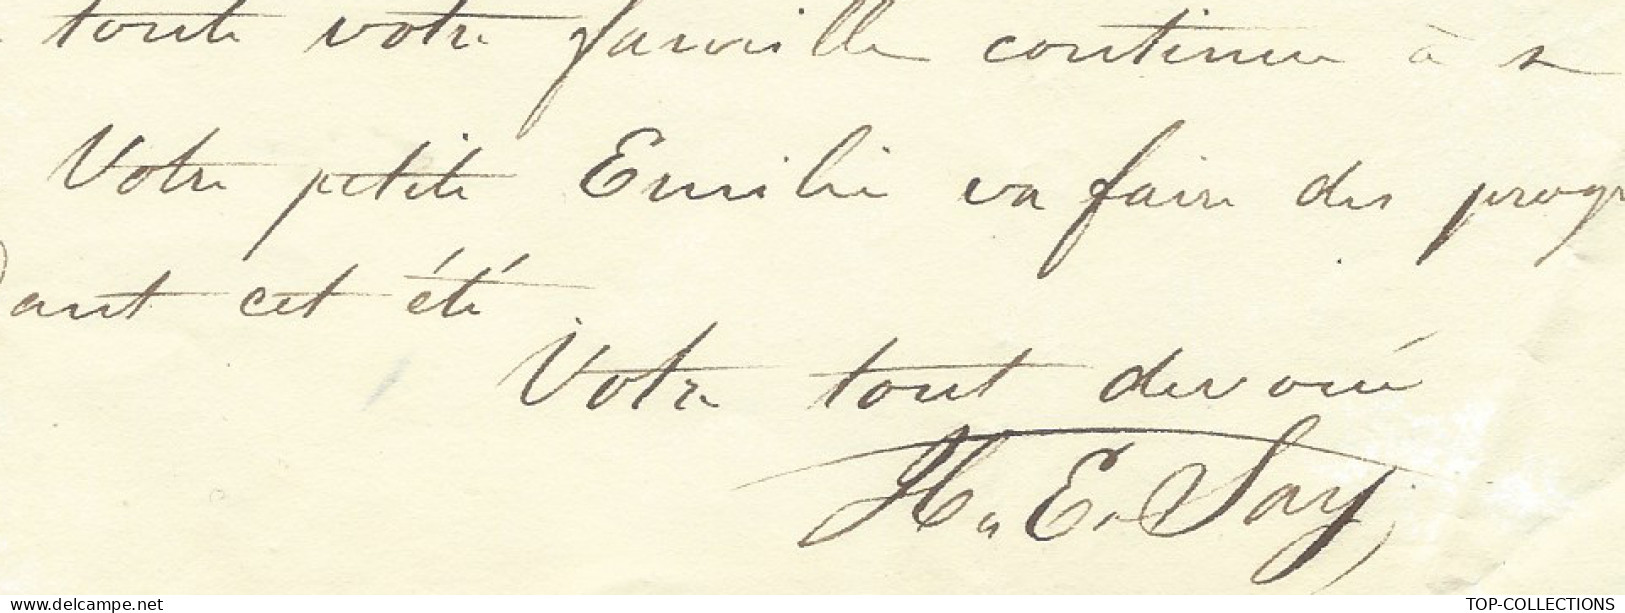 toute votre famille continue à s
Votre petite Emilie va faire des progr
dant cet été
Votre tout dévoué
H. E. Say
www.delcampe.net
TOP-COLLECTIONS